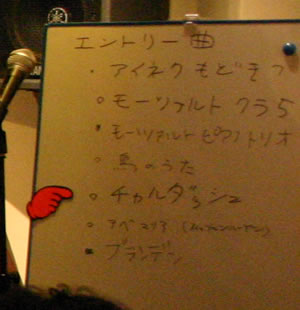 エントリー曲
アイネクもどき？
モーツァルト クラ5
モーツァルト ピアノトリオ
鳥のうた
チャルダッシュ
アベマリア
ブランデン